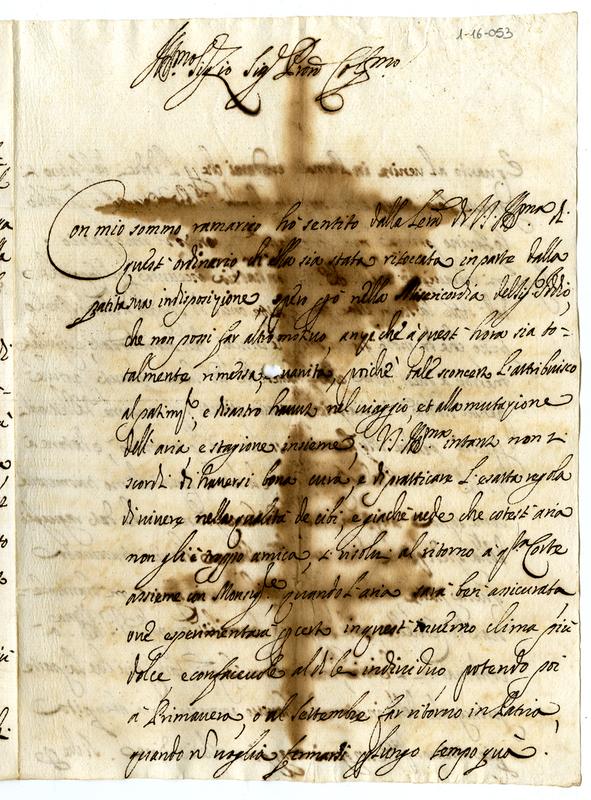 1-16-053
Ill.mo Sig.r Zio Sig.r Pron Col.mo
Con mio sommo ramarico hò sentito dalla Lettra di V.S. Ill.ma di
quest' ordinario ch'ella sia stata ritoccata in parte dalla
patita sua indisposizione spero però nella Misericordia del Sig.r Iddio,
che non possi far altro motivo, anzi che à quest' hora sia to-
talmente rimessa, e sanita, poiche tale sconcerto l'attribuisco
al patim.to, e disastro hauut nel viaggio et alla mutazione
dell'aria e stagione insieme, V.S. Ill.ma intant non si
scordi di hauersi bona cura, e di pratticare l'esatta regola
di uiuere nella qualità de cibi, e giache uede che cotest' aria
non gli è troppo amica, si risolui al ritorno à q.sta Corte
assieme con Monsig.re, quando l'aria sarà ben assicurata
oue esperimentarà p certo in quest' inuerno clima più
dolce e confaceuole al di lei indiuiduo, potendo poi
à Primauera, ò al Settembre far ritorno in Patria,
quando nò uoglia fermarsi p lungo tempo quà.